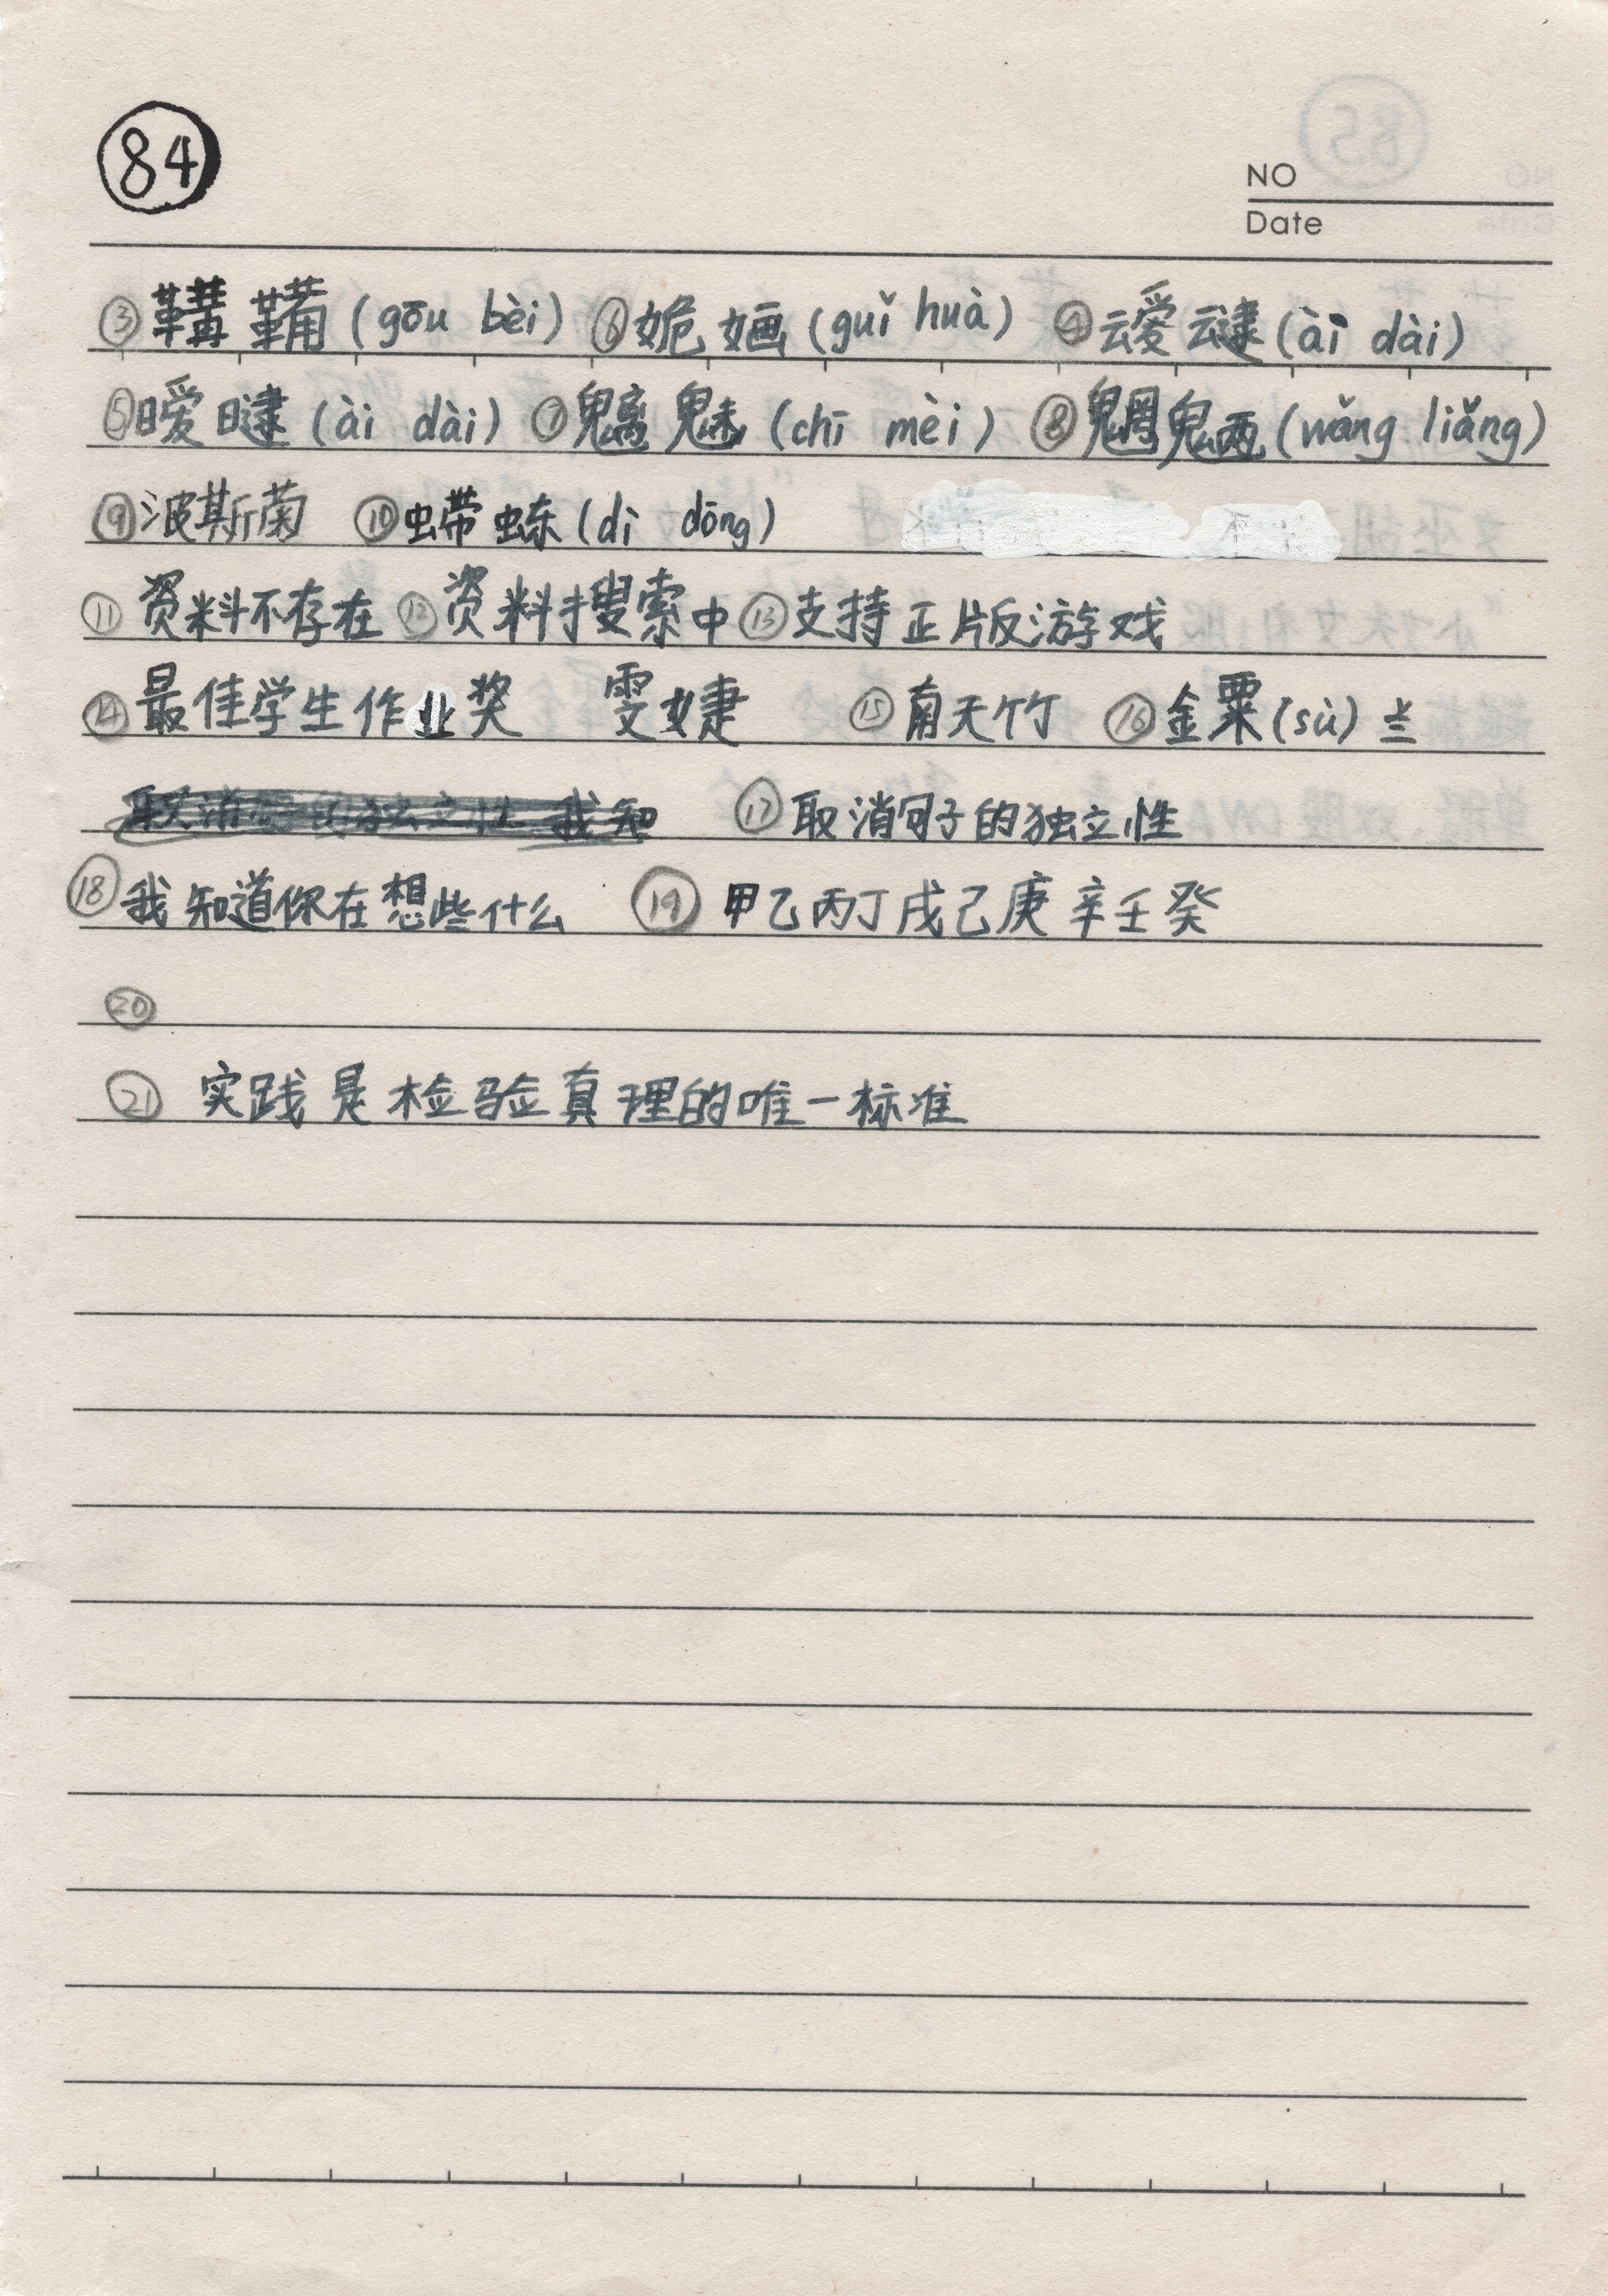 84
NO
Date
③鞲鞴(gōu bèi) ⑥姽婳(guǐ huà) ④叆叇(ài dài)
⑤暧曃(ài dài) ⑦魑魅(chī mèi) ⑧魍魉(wǎng liǎng)
⑨波斯菊 ⑩螮蝀(dì dōng)
⑪资料不存在 ⑫资料搜索中 ⑬支持正版游戏
⑭最佳学生作业奖 雯婕 ⑮南天竹 ⑯金粟(sù)兰
我知 ⑰取消句子的独立性
⑱我知道你在想些什么 ⑲甲乙丙丁戌己庚辛壬癸
⑳
㉑ 实践是检验真理的唯一标准